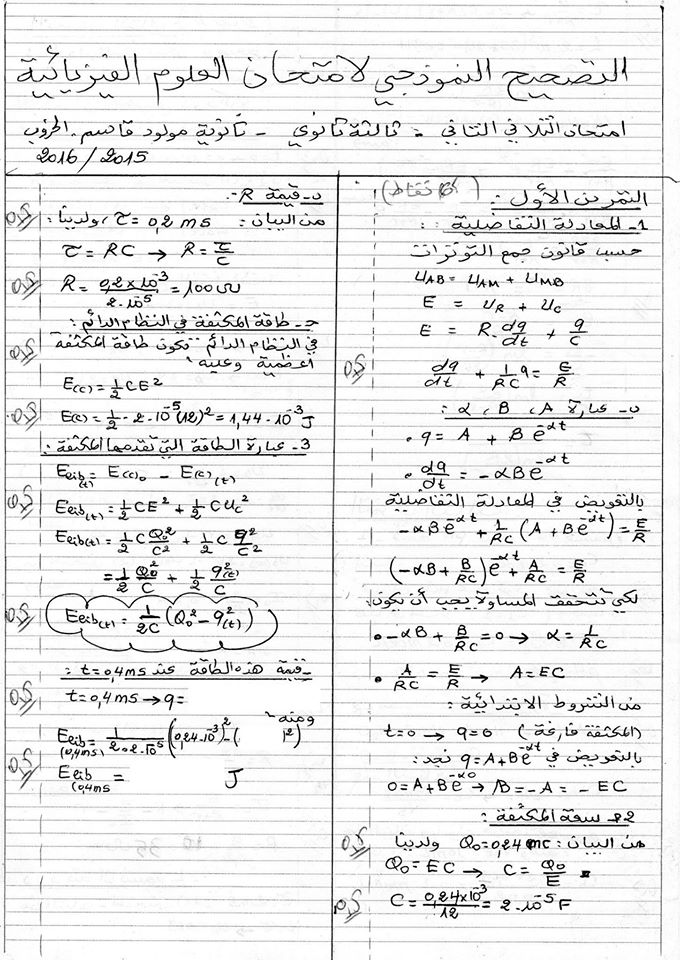 التصحيح النموذجي لامتحان العلوم الفيزيائية
امتحان الثلاثي الثاني - ثالثة ثانوي - ثانوية مولود قاسم - الخروب
2016/2015
التمرين الأول: (6 نقاط)
1- المعادلة التفاضلية:
حسب قانون جمع التوترات
u_AB = u_AM + u_MB
E = u_R + u_C
E = R.dq/dt + q/C
dq/dt + 1/RC q = E/R
0,5
ب- عبارة A، B، α:
. q = A + B e^-αt
. dq/dt = -αB e^-αt
بالتعويض في المعادلة التفاضلية
-αB e^-αt + 1/RC (A + B e^-αt) = E/R
(-αB + B/RC) e^-αt + A/RC = E/R
لكي تتحقق المساواة يجب أن يكون:
• -αB + B/RC = 0 → α = 1/RC
• A/RC = E/R → A = EC
من الشروط الابتدائية:
t=0 → q=0 (المكثفة فارغة)
بالتعويض في q = A + B e^-αt نجد:
0 = A + B e^-α0 → B = -A = -EC
2- سعة المكثفة:
من البيان: Q0 = 0,24 mC ولدينا
0,5
Q0 = EC → C = Q0/E
C = 0,24×10^-3/12 = 2.10^-5 F
0,5
ب- قيمة R:
من البيان: τ = 0,2 ms، ولدينا:
0,5
τ = RC → R = τ/C
R = 0,2×10^-3/2.10^-5 = 100 Ω
0,5
جـ- طاقة المكثفة في النظام الدائم:
في النظام الدائم تكون طاقة المكثفة
0,5
أعظمية وعليه:
E(C) = 1/2 CE²
E(C) = 1/2 . 2.10^-5 (12)² = 1,44.10^-3 J
0,5
3- عبارة الطاقة التي تقدمها المكثفة:
Elib(t) = E(C)0 - E(C)(t)
Elib(t) = 1/2 CE² + 1/2 C u_C²
0,5
Elib(t) = 1/2 C Q0²/C² + 1/2 C q²/C²
= 1/2 Q0²/C + 1/2 q²(t)/C
Elib(t) = 1/2C (Q0² - q²(t))
0,5
- قيمة هذه الطاقة عند t=0,4ms:
t=0,4ms → q=
0,5
ومنه
Elib(0,4ms) = 1/2.2.10^-5 ((0,24.10^-3)² - ( )²)
Elib(0,4ms = J
0,5